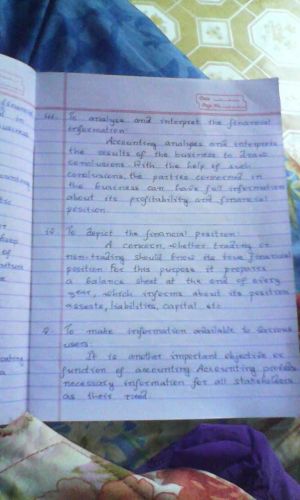 Date
Page No.
iii. To analyse and interpret the financial
information
Accounting analyses and interprets
the results of the business to draw
conclusions. With the help of such
conclusions, the parties concerned in
the business can have full information
about its profitability and financial
position.
iv. To depict the financial position:
A concern, whether trading or
non-trading should know its true financial
position For this purpose it prepares
a balance sheet at the end of every
year, which informs about its position
assests, liabilities, capital etc
v. To make information available to various
users
It is another important objective or
function of accounting Accounting provides
necessary information for all stakeholders
as their need.